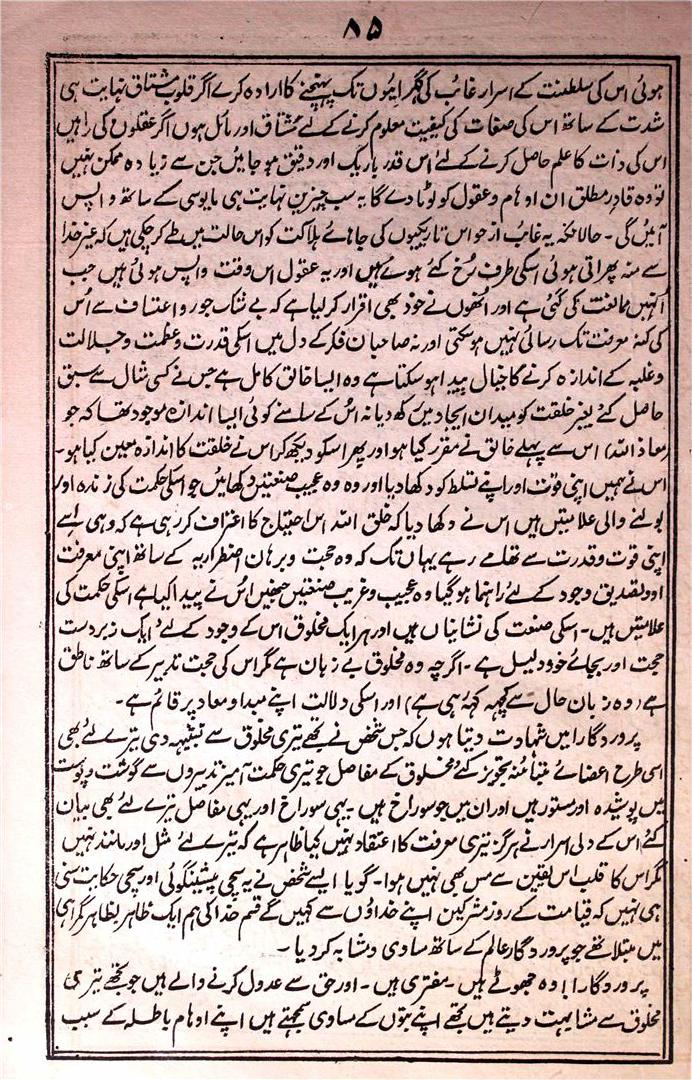 ۸۵
ہوئی اس کی سلطنت کے اسرار غائب کی گہرائیوں تک پہنچنے کا ارادہ کرے اگر قلوب مشتاق نہایت ہی
شدت کے ساتھ اس کی صفات کی کیفیت معلوم کرنے کے لئے مشتاق اور مائل ہوں اگر عقلوں کی راہیں
اس کی ذات کا علم حاصل کرنے کے لئے اس قدر باریک اور دقیق ہو جائیں جن سے زیادہ ممکن نہیں
تو وہ قادر مطلق ان اوہام و عقول کو لوٹا دے گا یہ سب چیزیں نہایت ہی مایوسی کے ساتھ واپس
آئیں گی ۔ حالانکہ یہ غائب از حواس تاریکیوں کی جاہائے ہلاکت کو اس حالت میں طے کر چکی ہیں کہ غیر خدا
سے منہ پھراتی ہوئی اسکی طرف رخ کئے ہوئے ہیں اور یہ عقول اس وقت واپس ہوئی ہیں جب
اُنہیں ممانعت کی گئی ہے اور اُنھوں نے خود بھی اقرار کر لیا ہے کہ بے شک جور و اعتساف سے اُس
کی کنہ معرفت تک رسائی نہیں ہو سکتی اور نہ صاحبان فکر کے دل میں اسکی قدرت و عظمت و جلالت
و غلبہ کے اندازہ کرنے کا خیال پیدا ہو سکتا ہے وہ ایسا خالق کامل ہے جس نے کسی مثال سے سبق
حاصل کئے بغیر خلقت کو میدان ایجاد میں رکھ دیا نہ اس کے سامنے کوئی ایسا اندازہ موجود تھا کہ جو
(معاذ اللہ) اس سے پہلے خالق نے مقرر کیا ہو اور پھر اسکو دیکھ کر اس نے خلقت کا اندازہ معین کیا ہو ۔
اس نے ہمیں اپنی قوت اور اپنے تسلط کو دکھا دیا اور وہ وہ عجیب صنعتیں دکھائیں جو اسکی حکمت کی زندہ اور
بولنے والی علامتیں ہیں اس نے دکھا دیا کہ خلق اللہ اس احتیاج کا اعتراف کر رہی ہے کہ وہی اسے
اپنی قوت و قدرت سے تھامے رہے یہاں تک کہ وہ حجت و برہان اضطراریہ کے ساتھ اپنی معرفت
اور تصدیق وجود کے لئے راہنما ہو گیا وہ عجیب و غریب صنعتیں جنھیں اس نے پیدا کیا ہے اسکی حکمت کی
علامتیں ہیں ۔ اسکی صنعت کی نشانیاں ہیں اور ہر ایک مخلوق اس کے وجود کے لئے ایک زبردست
حجت اور بجائے خود دلیل ہے ۔ اگرچہ وہ مخلوق بے زبان ہے مگر اس کی حجت تدبیر کے ساتھ ناطق
ہے (وہ زبان حال سے کچھ کہہ رہی ہے) اور اسکی دلالت اپنے مبدا و معاد پر قائم ہے ۔
پروردگارا میں شہادت دیتا ہوں کہ جس شخص نے تجھے تیری مخلوق سے تشبیہ دی تیرے لئے بھی
اسی طرح اعضائے متبائنہ تجویز کئے مخلوق کے مفاصل جو تیری حکمت آمیز تدبیروں سے گوشت و پوست
میں پوشیدہ اور مستور ہیں اور ان میں جو سوراخ ہیں ۔ یہی سوراخ اور یہی مفاصل تیرے لئے بھی بیان
کئے اس کے دلی اسرار نے ہرگز تیری معرفت کا اعتقاد نہیں کیا ظاہر ہے کہ تیرے لئے مثل اور مانند نہیں
مگر اس کا قلب اس یقین سے مس بھی نہیں ہوا ۔ گویا ایسے شخص نے یہ سچی پیشینگوئی اور سچی حکایت سنی
ہی نہیں کہ قیامت کے روز مشرکین اپنے خداؤں سے کہیں گے قسم خدا کی ہم ایک ظاہر بظاہر گمراہی
میں مبتلا تھے جو پروردگار عالم کے ساتھ مساوی و مشابہ کر دیا ۔
پروردگارا! وہ جھوٹے ہیں ۔ مفتری ہیں ۔ اور حق سے عدول کرنے والے ہیں جو تجھے تیری
مخلوق سے مشابہت دیتے ہیں تجھے اپنے بتوں کے مساوی سمجھتے ہیں اپنے اوہام باطلہ کے سبب